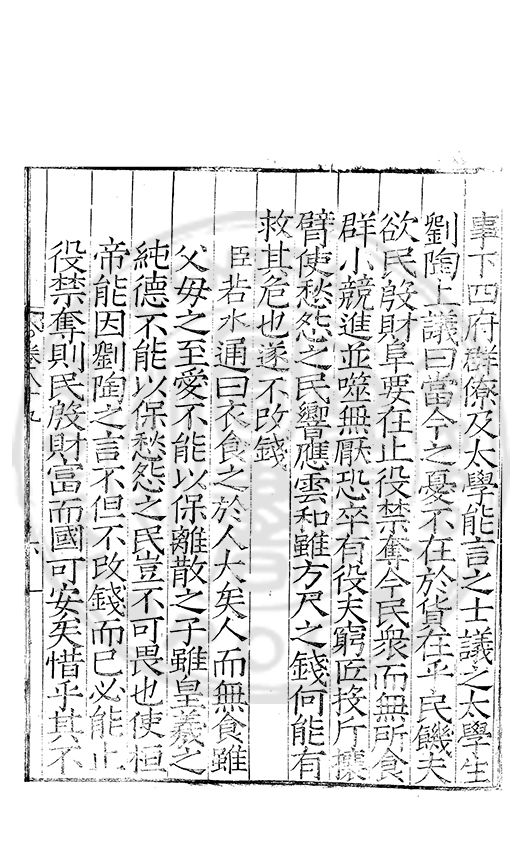 事下四府群僚及太學能言之士議之太學生
劉陶上議曰當今之憂不在於貨在乎民饑夫
欲民殷財阜要在止役禁奪今民衆而無所食
群小競進並噬無厭恐卒有役夫窮匠投斤攘
臂使愁怨之民響應雲和雖方尺之錢何能有
救其危也遂不改錢
臣若水通曰衣食之於人大矣人而無食雖
父母之至愛不能以保離散之子雖皇羲之
純德不能以保愁怨之民豈不可畏也使桓
帝能因劉陶之言不但不改錢而已必能止
役禁奪則民殷財富而國可安矣惜乎其不
卷八十九